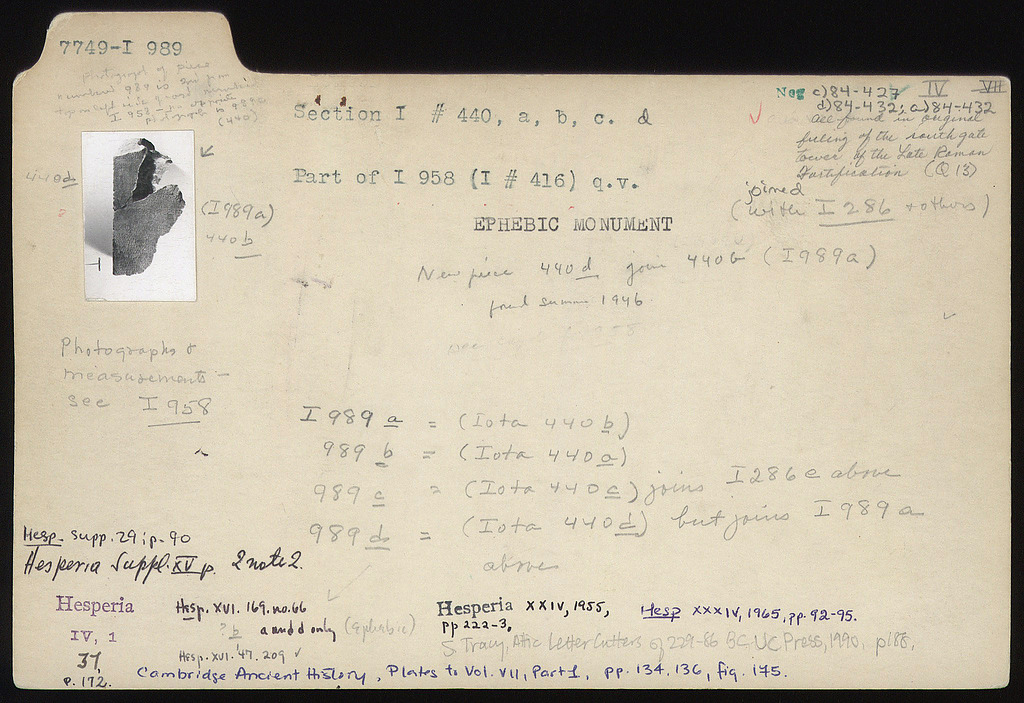 7749-I 989
photograph of piece
numbered 989 is
I 958
(440)
Neg c)84-427 IV VII
d)84-432; a)84-432
All found in original
filling of the south gate
tower of the Late Roman
Fortification (Q 13)
Section I # 440, a, b, c. d
Part of I 958 (I # 416) q.v.
joined
(with I 286 + others)
440d
(I989a)
440 b
EPHEBIC MONUMENT
New piece 440 d joins 440b (I989a)
found summer 1946
Photographs &
measurements -
see I 958
I 989 a = (Iota 440 b)
989 b = (Iota 440 a)
989 c = (Iota 440 c) joins I 286 e above
989 d = (Iota 440 d) but joins I 989 a
above
Hesp. Supp. 29; p. 90
Hesperia Suppl. XV p. 2 note 2.
Hesperia
IV, 1
37,
p. 172.
Hesp. XVI. 169. no. 66
? b a and d only (Ephebic)
Hesp. XVI. '47. 209 ✓
Hesperia XXIV, 1955,
pp 222-3,
Hesp XXXIV, 1965, pp. 92-95.
S. Tracy, Attic Letter Cutters of 229-86 BC. UC Press, 1990, p188,
Cambridge Ancient History, Plates to Vol. VII, Part 1, pp. 134, 136, fig. 175.